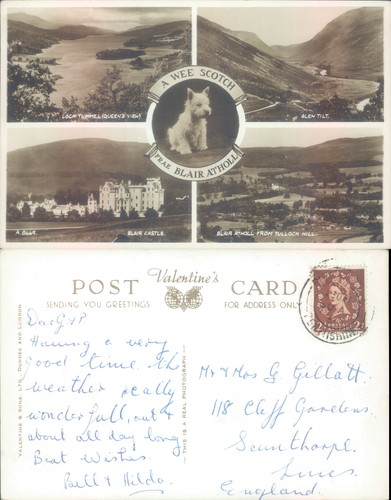 LOCH TUMMEL (QUEEN'S VIEW)
GLEN TILT.
A WEE SCOTCH
FRAE BLAIR ATHOLL
BLAIR CASTLE.
BLAIR ATHOLL FROM TULLOCH HILL.
POST Valentine's CARD
SENDING YOU GREETINGS
FOR ADDRESS ONLY
VALENTINE & SONS, LTD., DUNDEE AND LONDON
THIS IS A REAL PHOTOGRAPH
Dear G & P
Having a very
good time the
weather really
wonderfull, out &
about all day long
Best Wishes
Bill & Hilda.
Mr & Mrs G Gillatt
118 Cliff Gardens
Scunthorpe
Lincs
England.